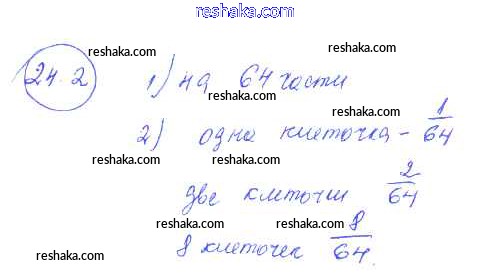 reshaka.com
reshaka.com reshaka.com
24.2 1) на 64 части
reshaka.com reshaka.com
2) одна клеточка - 1/64
reshaka.com reshaka.com
две клеточки 2/64
reshaka.com reshaka.com
8 клеточек 8/64
reshaka.com reshaka.com